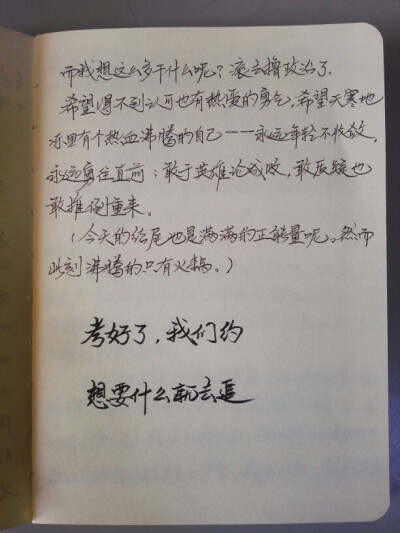 而我想这么多干什么呢？滚去撸政治了.
希望得不到认可也有热爱的勇气,希望天寒地
冻里有个热血沸腾的自己——永远年轻不收敛,
永远勇往直前；敢于英雄论成败,敢在绽也
敢推倒重来。
（今天的结尾也是满满的正能量呢。然而
此刻沸腾的只有火锅。）
考好了，我们约
想要什么就去追